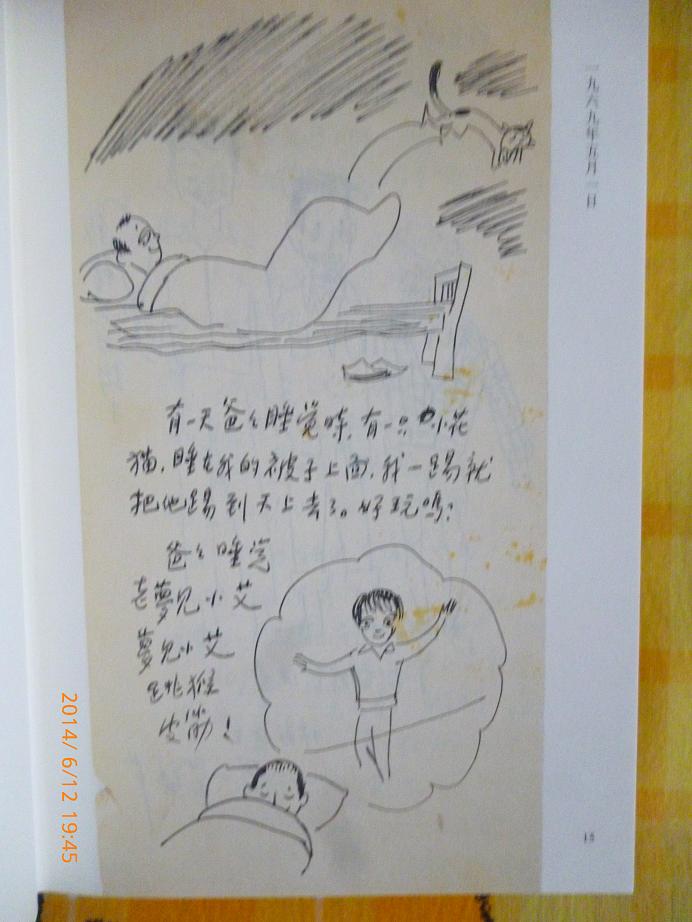 一九六九年五月一日
有一天爸々睡觉時，有一只小花
猫，睡在我的被子上面，我一踢就
把他踢到天上去了。好玩嗎？
爸々睡觉
老夢見小艾
夢見小艾
跳猴
皮筋！
15
2014/ 6/12 19:45